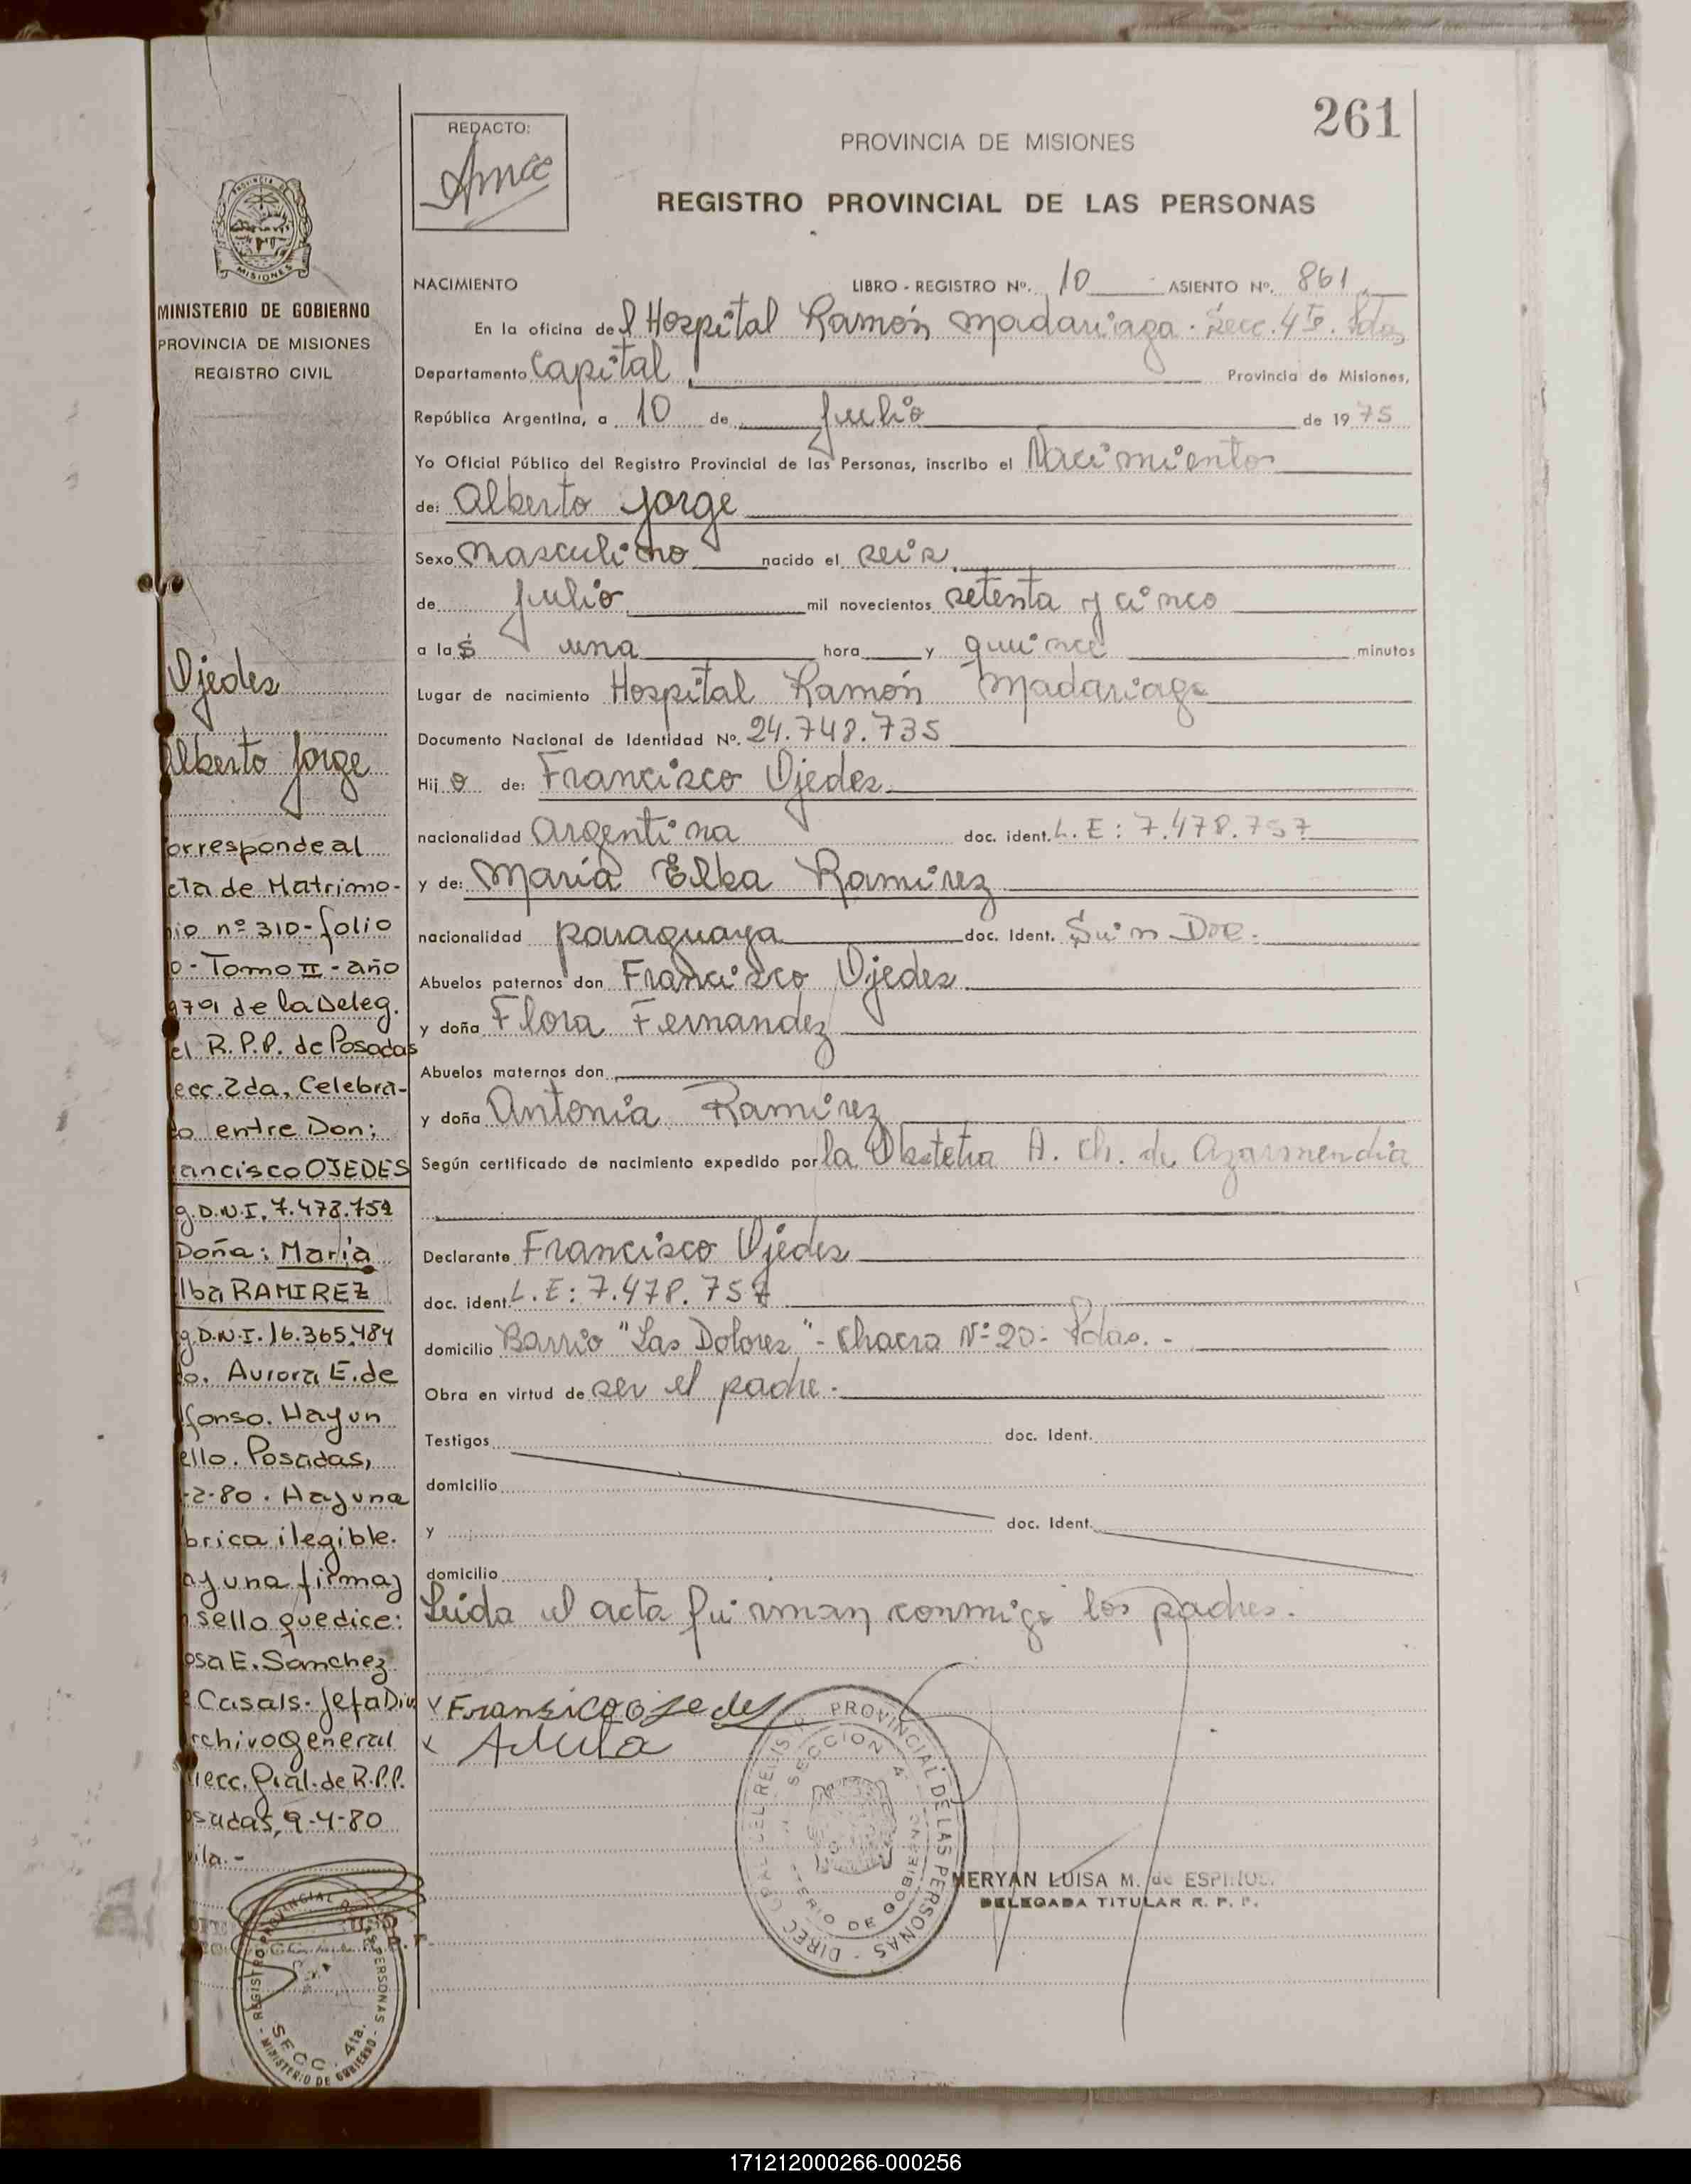 261
REDACTO:
PROVINCIA DE MISIONES
REGISTRO PROVINCIAL DE LAS PERSONAS
MISIONES
MINISTERIO DE GOBIERNO
PROVINCIA DE MISIONES
REGISTRO CIVIL
NACIMIENTO LIBRO - REGISTRO Nº. 10 ASIENTO Nº. 861
En la oficina del Hospital Ramón Madariaga. Secc. 4ta. Pdas
Departamento Capital Provincia de Misiones,
República Argentina, a 10 de Julio de 1975
Yo Oficial Público del Registro Provincial de las Personas, inscribo el Nacimiento
de: Alberto Jorge
Sexo Masculino nacido el seis
de Julio mil novecientos setenta y cinco
a las una hora y quince minutos
Lugar de nacimiento Hospital Ramón Madariaga
Documento Nacional de Identidad Nº. 24.748.735
Hijo de: Francisco Ojedes
nacionalidad Argentina doc. ident. L.E: 7.478.757
y de: María Elba Ramírez
nacionalidad paraguaya doc. Ident. Sin Doc.
Abuelos paternos don Francisco Ojedes
y doña Flora Fernandez
Abuelos maternos don
y doña Antonia Ramírez
Según certificado de nacimiento expedido por la Obstetra A. Ch. de Azarmendia
Declarante Francisco Ojedes
doc. ident. L.E: 7.478.757
domicilio Barrio "Las Dolores" - Chacra Nº 20- Pdas. -
Obra en virtud de ser el padre.
Testigos doc. Ident.
domicilio
y doc. Ident.
domicilio
Leida el acta firman conmigo los padres.
x Fransico ojedes
x
DIREC. GRAL DEL REGISTRO PROVINCIAL DE LAS PERSONAS
SECCION 4
MINISTERIO DE GOBIERNO
MERYAN LUISA M. de ESPINO
DELEGADA TITULAR R. P. P.
Ojedes
Alberto Jorge
orresponde al
cta de Matrimo-
nio nº 310-folio
0 - Tomo II - año
979 de la Deleg.
el R.P.P. de Posadas
ecc. 2da, Celebra-
do entre Don:
ancisco OJEDES
g. D.N.I. 7.478.757
Doña: María
lba RAMIREZ
g. D.N.I. 16.365.484
o. Aurora E. de
lfonso. Hay un
ello. Posadas,
-2-80. Hay una
brica ilegible.
ay una firma y
n sello que dice:
osa E. Sanchez
e Casals- Jefa Div
rchivo General
irecc. Gral. de R.P.P.
osadas, 9-4-80
vila.-
REGISTRO PROVINCIAL DE LAS PERSONAS
SECC. 4ta.
MINISTERIO DE GOBIERNO
171212000266-000256